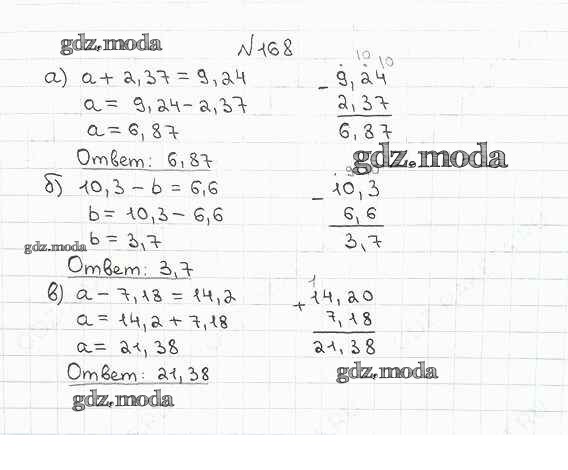 gdz.moda
№168
а) a + 2,37 = 9,24
a = 9,24 - 2,37
a = 6,87
Ответ: 6,87
10 10
- 9,24
2,37
6,87
gdz.moda
б) 10,3 - b = 6,6
b = 10,3 - 6,6
b = 3,7
gdz.moda
Ответ: 3,7
- 10,3
6,6
3,7
в) a - 7,18 = 14,2
a = 14,2 + 7,18
a = 21,38
Ответ: 21,38
gdz.moda
1
+ 14,20
7,18
21,38
gdz.moda